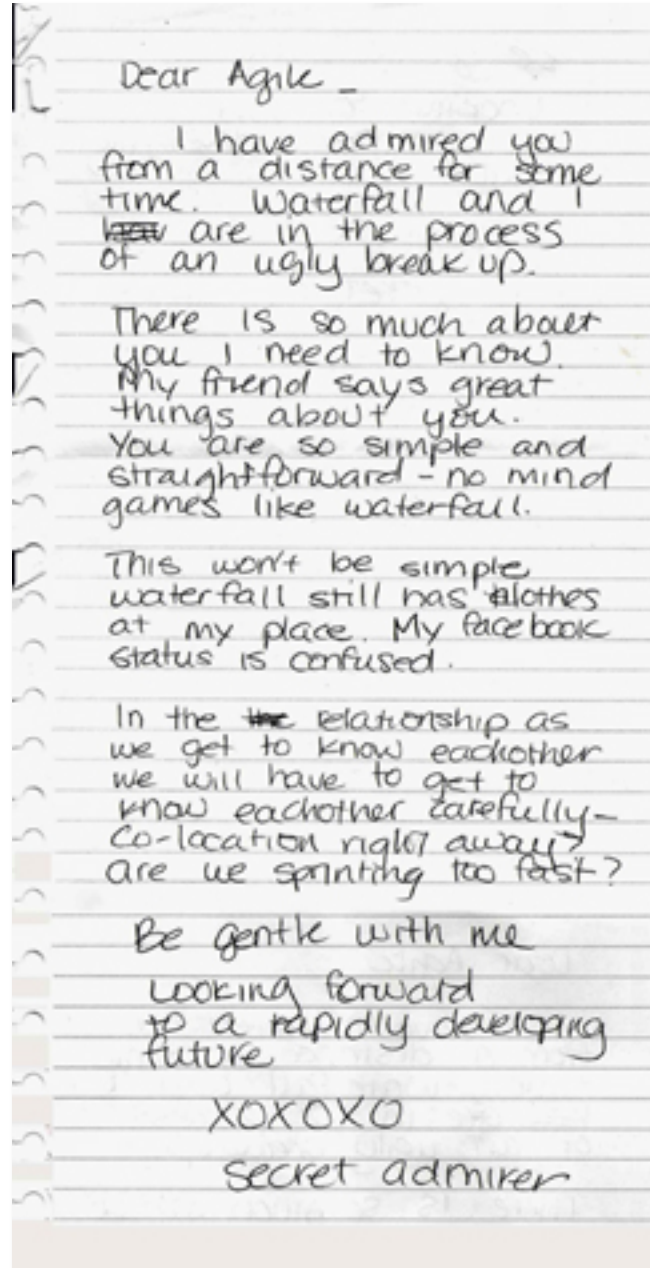 Dear Agile –
I have admired you
from a distance for some
time. Waterfall and I
are in the process
of an ugly break up.
There is so much about
you I need to know.
My friend says great
things about you.
You are so simple and
straightforward - no mind
games like waterfall.
This won't be simple
waterfall still has clothes
at my place. My facebook
status is confused.
In the relationship as
we get to know eachother
we will have to get to
know eachother carefully-
Co-location right away?
are we sprinting too fast?
Be gentle with me
Looking forward
to a rapidly developing
future
XOXOXO
Secret admirer